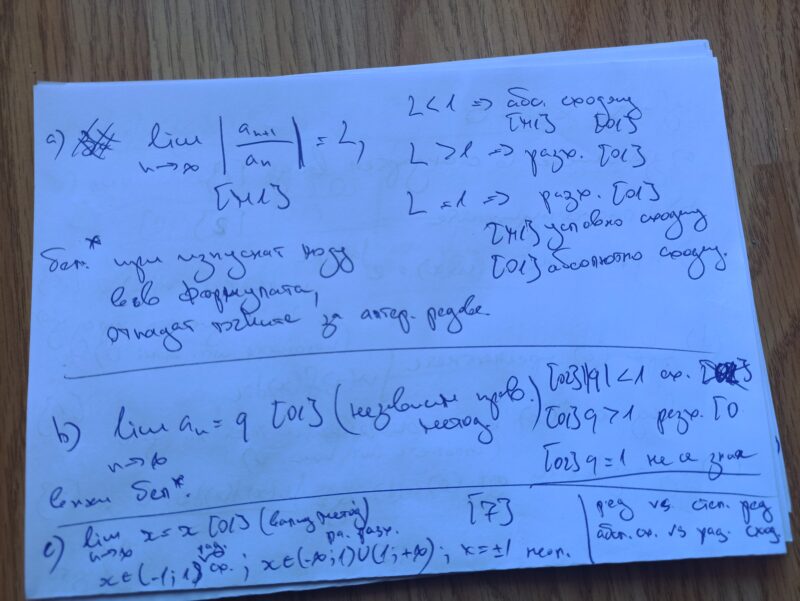 a) lim n→∞ |aₙ₊₁/aₙ| = L,
[M1]
L < 1 => абс. сходящ
[M1] [O1]
L > 1 => разх. [O1]
L = 1 => разх. [O1]
[M1] условно сходящ
[O1] абсолютно сходящ.
бел.* при изпуснат модул
във формулата,
отпадат точките за алтер. редове.
b) lim n→∞ aₙ = q [O1] (независим прав. метод)
[O2] |q| < 1 сх.
[O1] q > 1 разх. [O
[O2] q = 1 не се знае
виж бел*.
c) lim n→∞ x = x [O1] (валид метод)
[7]
x ∈ (-1; 1) сх. ; x ∈ (-∞; 1) ∪ (1; +∞) ; x = ±1 неоп.
рад.
разх.
ред vs степ. ред
абсл. сх. vs рад. сход.